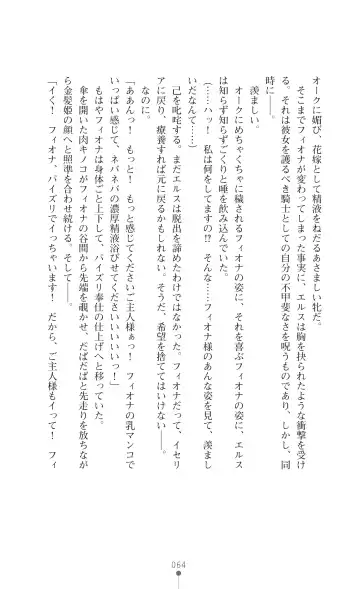 オークに媚び、花嫁として精液をねだるあさましい牝だ。
そこまでフィオナが変わってしまった事実に、エルスは胸を抉られたような衝撃を受け
る。それは彼女を護るべき騎士としての自分の不甲斐なさを呪うものであり、しかし、同
時に――。
羨ましい。
オークにめちゃくちゃに穢されるフィオナの姿に、それを喜ぶフィオナの姿に、エルス
は知らず知らずごくりと唾を飲み込んでいた。
(……ハッ！　私は何をしてますの!?　そんな……フィオナ様のあんな姿を見て、羨まし
いだなんて……)
己を叱咤する。まだエルスは脱出を諦めたわけではなかった。フィオナだって、イセリ
アに戻り、療養すれば元に戻るかもしれない。そうだ、希望を捨ててはいけない――。
なのに。
「ああんっ！　もっと！　もっと感じてくださいご主人様ぁっ！　フィオナの乳マンコで
いっぱい感じて、ネバネバの濃厚精液浴びせてくださいいいいいっ！」
もはやフィオナは身体ごと上下して、パイズリ奉仕の仕上げへと移っていた。
傘を開いた肉キノコがフィオナの谷間から先端を覗かせ、だばだばと先走りを放ちなが
ら金髪姫の顔へと照準を合わせ続ける。そして――。
「イく！　フィオナ、パイズリでイっちゃいます！　だから、ご主人様もイって！　フィ
064